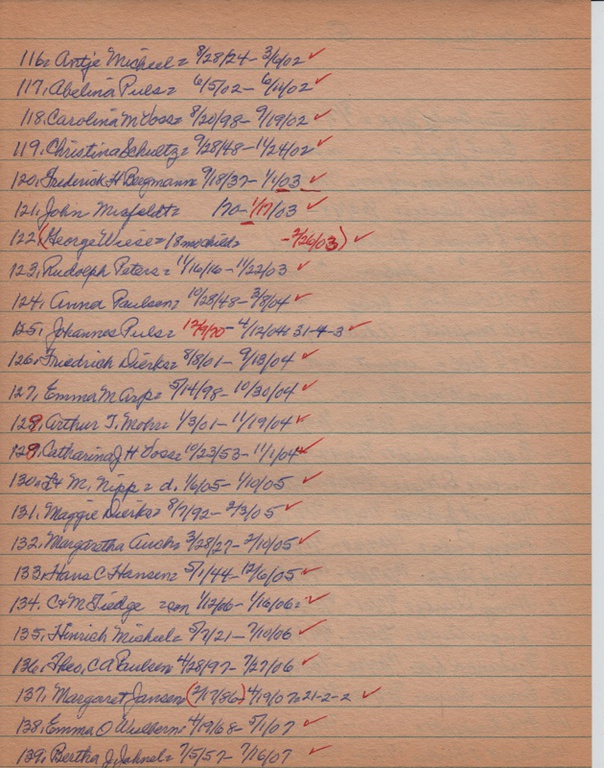 116. Antje Michael = 8/28/24 - 3/6/02 ✓
117. Abelina Puls = 6/5/02 - 6/11/02 ✓
118. Carolina M Voss = 8/20/98 - 9/19/02 ✓
119. Christina Schultz = 9/28/48 - 11/24/02 ✓
120. Frederick H Bergmann = 9/18/37 - 1/1/03 ✓
121. John Misfeldt = 170 - 1/17/03 ✓
122. (George Wiese = 18 mo child = - 3/26/03) ✓
123. Rudolph Peters = 11/16/16 - 11/22/03 ✓
124. Anna Paulsen = 10/28/48 - 3/8/04 ✓
125. Johannes Puls = 12/9/70 - 4/12/04 = 31-4-3 ✓
126. Friedrich Dierks = 8/8/01 - 9/13/04 ✓
127. Emma M Arp = 5/14/98 - 10/30/04 ✓
128. Arthur T. Mohr = 1/3/01 - 11/19/04 ✓
129. Catharina J H Voss = 10/23/53 - 11/1/04 ✓
130. M. Nipp = d. 1/6/05 - 1/10/05 ✓
131. Maggie Dierks = 8/7/92 - 2/3/05 ✓
132. Margaretha Auch = 3/28/27 - 2/10/05 ✓
133. Hans C Hansen = 5/1/44 - 12/6/05 ✓
134. C & M Tiedge = son 1/12/06 - 1/16/06 = ✓
135. Hinrich Mishiel = 5/7/21 - 7/10/06 ✓
136. Theo. C A Paulsen 4/28/97 - 7/27/06 ✓
137. Margaret Jansen (2/17/86) 4/19/07 = 21-2-2 ✓
138. Emma O 4/19/68 - 5/1/07 ✓
139. Bertha J. Jahnel = 7/5/57 - 7/16/07 ✓